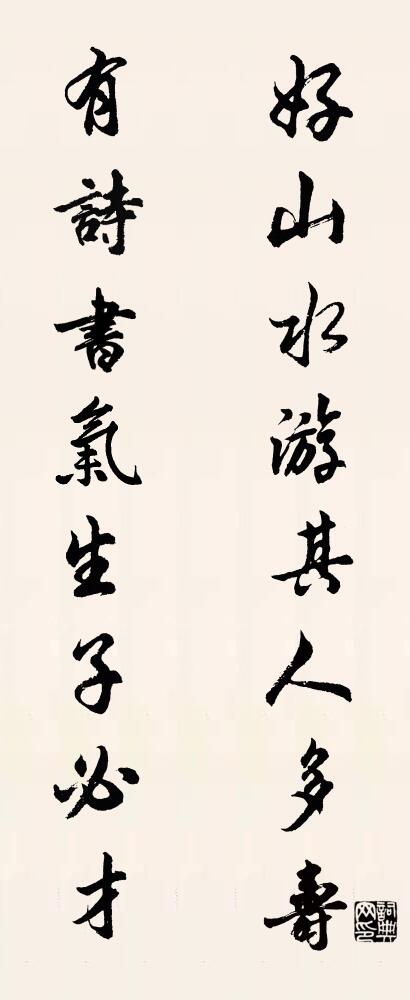 好山水游其人多壽
有詩書氣生子必才
詞典網印